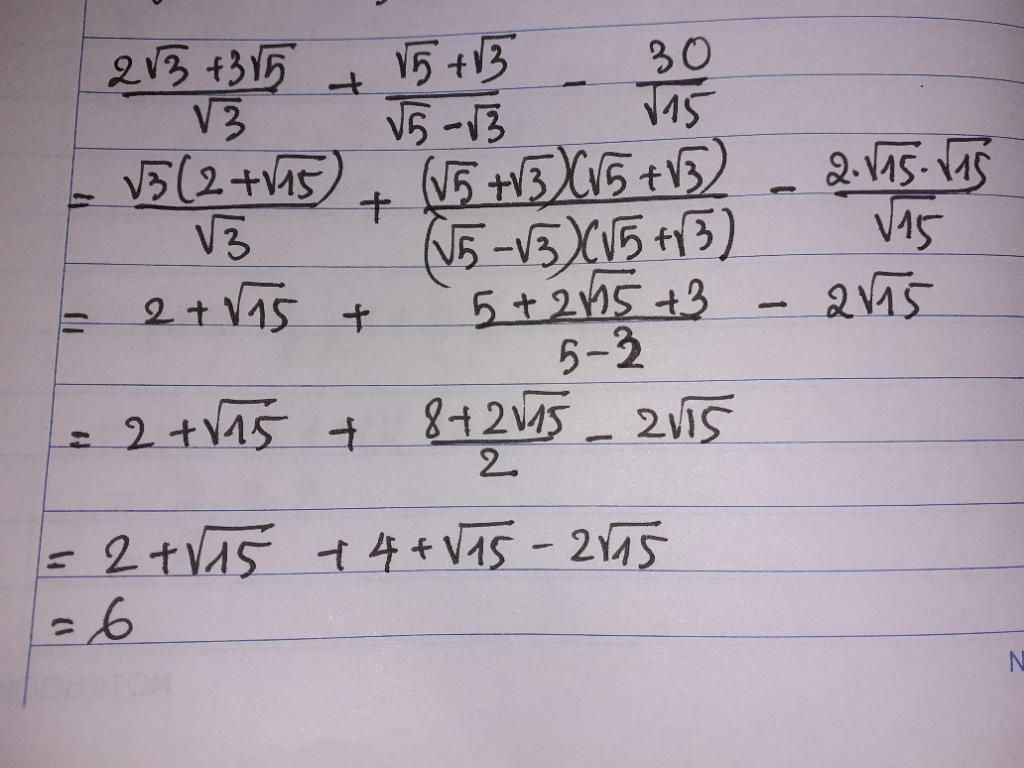 (2√3 + 3√5)/√3 + (√5 + √3)/(√5 - √3) - 30/√15
= √3(2 + √15)/√3 + (√5 + √3)(√5 + √3)/(√5 - √3)(√5 + √3) - 2.√15.√15/√15
= 2 + √15 + (5 + 2√15 + 3)/(5 - 3) - 2√15
= 2 + √15 + (8 + 2√15)/2 - 2√15
= 2 + √15 + 4 + √15 - 2√15
= 6
N